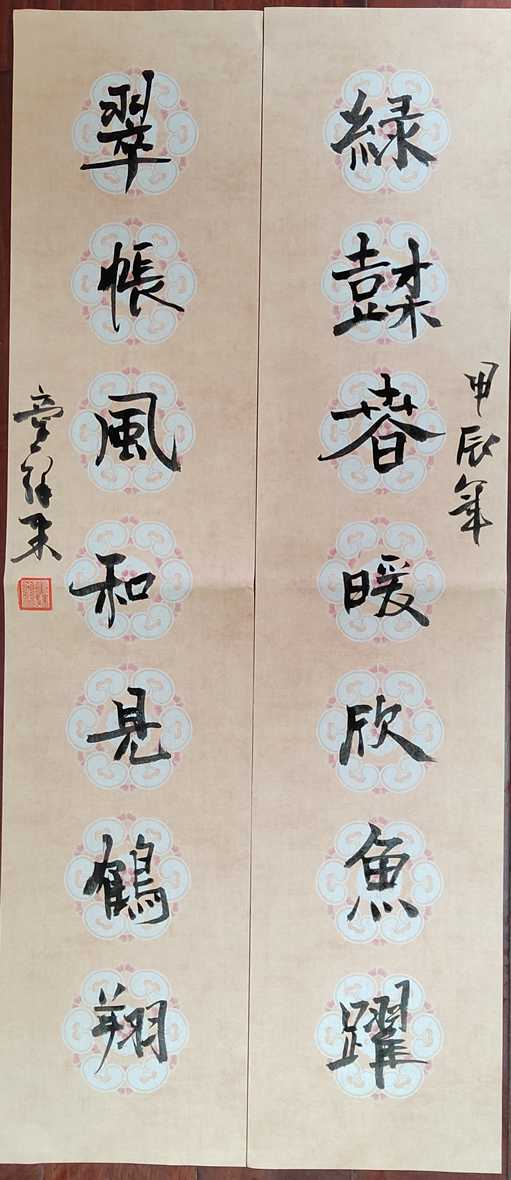 甲辰年
綠春暖欣魚躍
翠帳風和見鶴翔